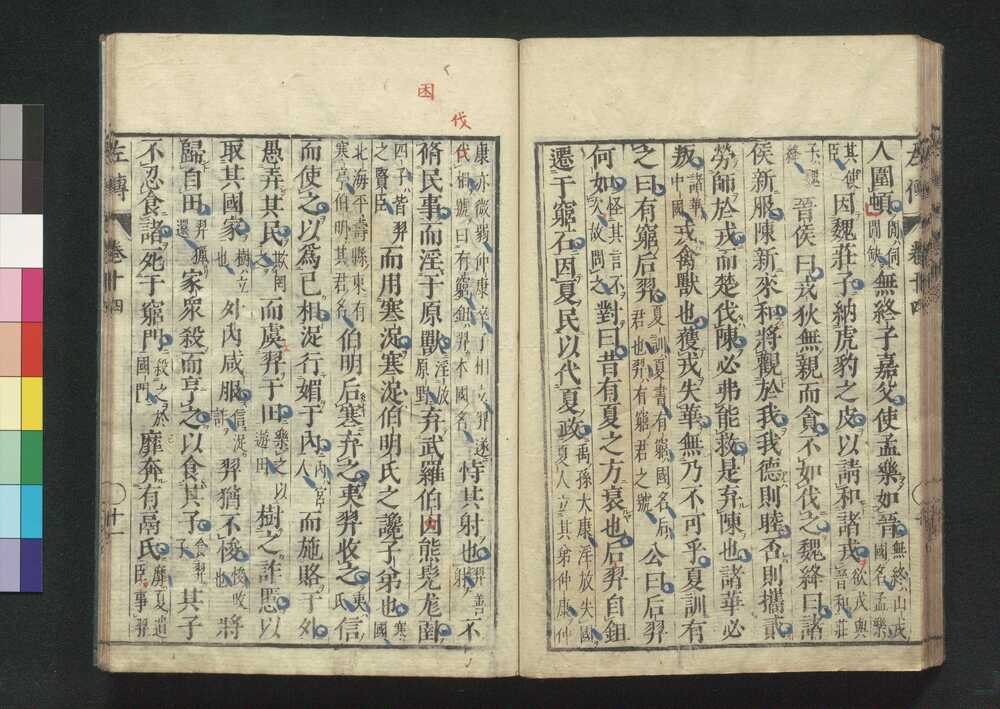 左傳 卷十四
人圍頓間伺間缺無終子嘉父使孟樂如晉無終山戎國名孟樂
其使臣因魏莊子納虎豹之皮以請和諸戎欲戎與晉和莊
子魏絳晉侯曰戎狄無親而貪不如伐之魏絳曰諸
侯新服陳新來和將觀於我我德則睦否則攜貳
勞師於戎而楚伐陳必弗能救是弃陳也諸華必
叛諸華中國戎禽獸也獲戎失華無乃不可乎夏訓有
之曰有窮后羿夏訓夏書有窮國名后君也羿有窮君之號公曰后羿
何如怪其言不次故問之對曰昔有夏之方衰也后羿自鉏
遷于窮石因夏民以代夏政禹孫大康淫放失國夏人立其弟仲康仲
伐
困
康亦微弱仲康卒子相立羿遂代相號曰有窮鉏羿本國名恃其射也羿善射不
脩民事而淫于原獸淫放原野弃武羅伯因熊髡尨圉
四子皆羿之賢臣而用寒浞寒浞伯明氏之讒子弟也寒國
北海平壽縣東有寒亭伯明其君名伯明后寒弃之夷羿收之夷氏信
而使之以爲已相浞行媚于內內宮人而施賂于外
愚弄其民欺罔之而虞羿于田樂之以遊田樹之詐慝以
取其國家樹立也外內咸服信浞詐羿猶不悛悛改也將
歸自田羿獵還家衆殺而亨之以食其子食羿子其子
不忍食諸死于窮門殺之於國門靡奔有鬲氏靡夏遺臣事羿
左傳 卷十四 十一